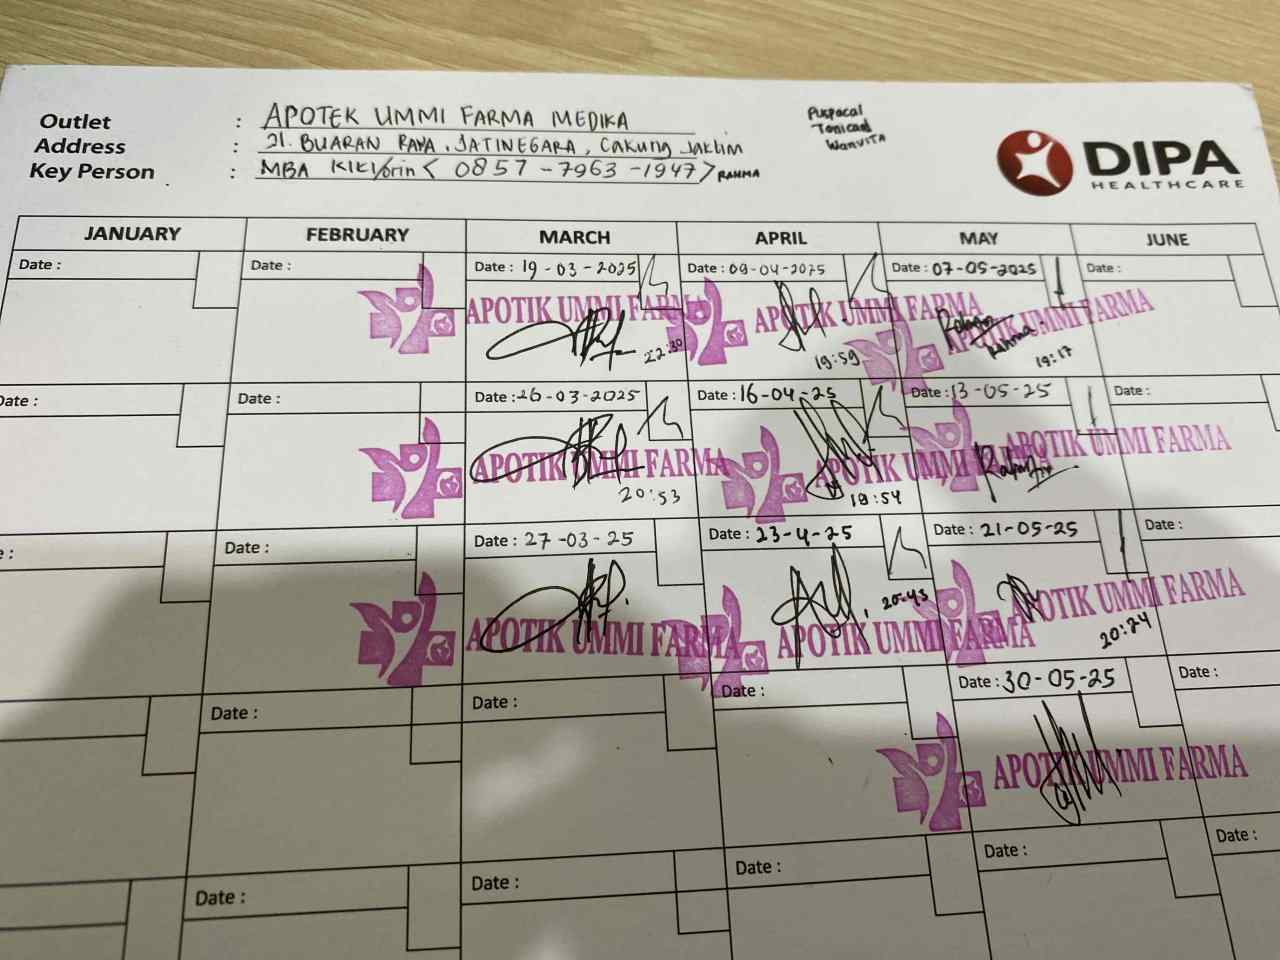 Outlet : APOTEK UMMI FARMA MEDIKA
Address : Jl. BUARAN RAYA, JATINEGARA, Cakung Jaktim
Key Person : MBA KIKI/orin < 0857-7963-1947> RAHMA
Puspacal
Tonicard
WanVITA
DIPA
HEALTHCARE
JANUARY FEBRUARY MARCH APRIL MAY JUNE
Date : Date : Date : 19-03-2025 Date : 09-04-2025 Date : 07-05-2025 Date :
APOTIK UMMI FARMA APOTIK UMMI FARMA APOTIK UMMI FARMA
Rahma
22:30 19:59 19:17
Date : Date : Date : 26-03-2025 Date : 16-04-25 Date : 13-05-25 Date :
APOTIK UMMI FARMA APOTIK UMMI FARMA APOTIK UMMI FARMA
20:53 19:54
: Date : Date : 27-03-25 Date : 23-4-25 Date : 21-05-25 Date :
APOTIK UMMI FARMA APOTIK UMMI FARMA APOTIK UMMI FARMA
20:43 20:24
Date : Date : Date : Date : 30-05-25 Date :
APOTIK UMMI FARMA
Date : Date : Date : Date : Date :